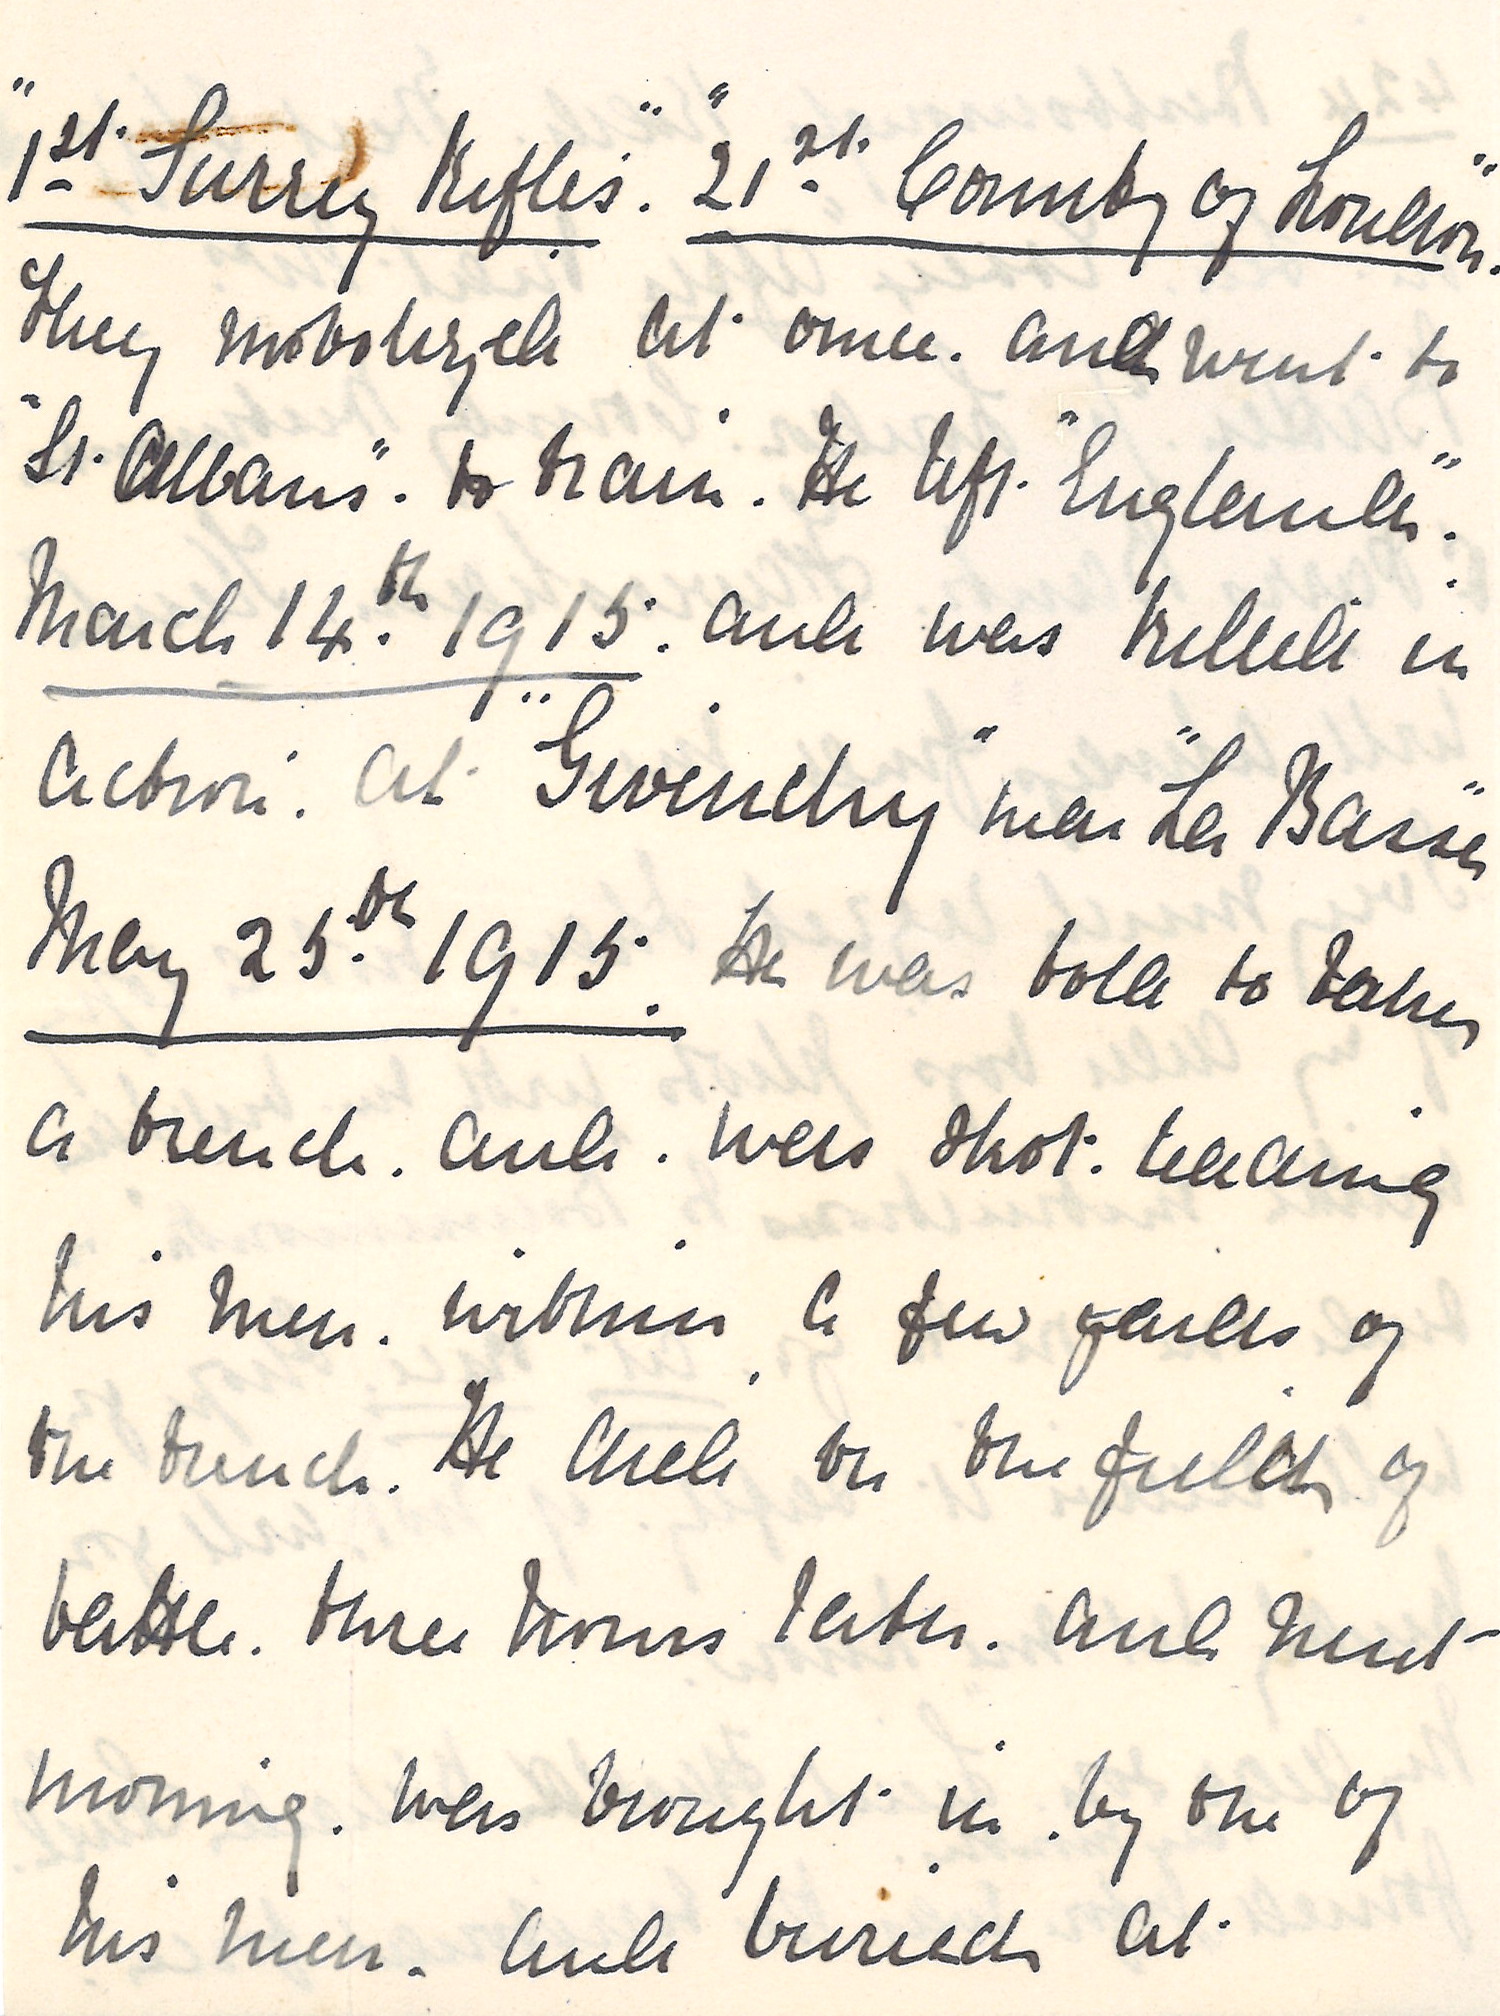 "1st. Surrey Rifles". "21st. County of London".
They mobolized at once. and went to
"St. Albans". to train. He left. "England".
March 14th. 1915. and was killed in
action. at "Givenchy" near "La Basse"
May 25th. 1915. He was told to take
a trench. and. was shot. leading
his men. within a few yards of
the trench. He died on the field of
battle. three hours later. and next
morning. was brought in. by one of
his men. and buried at